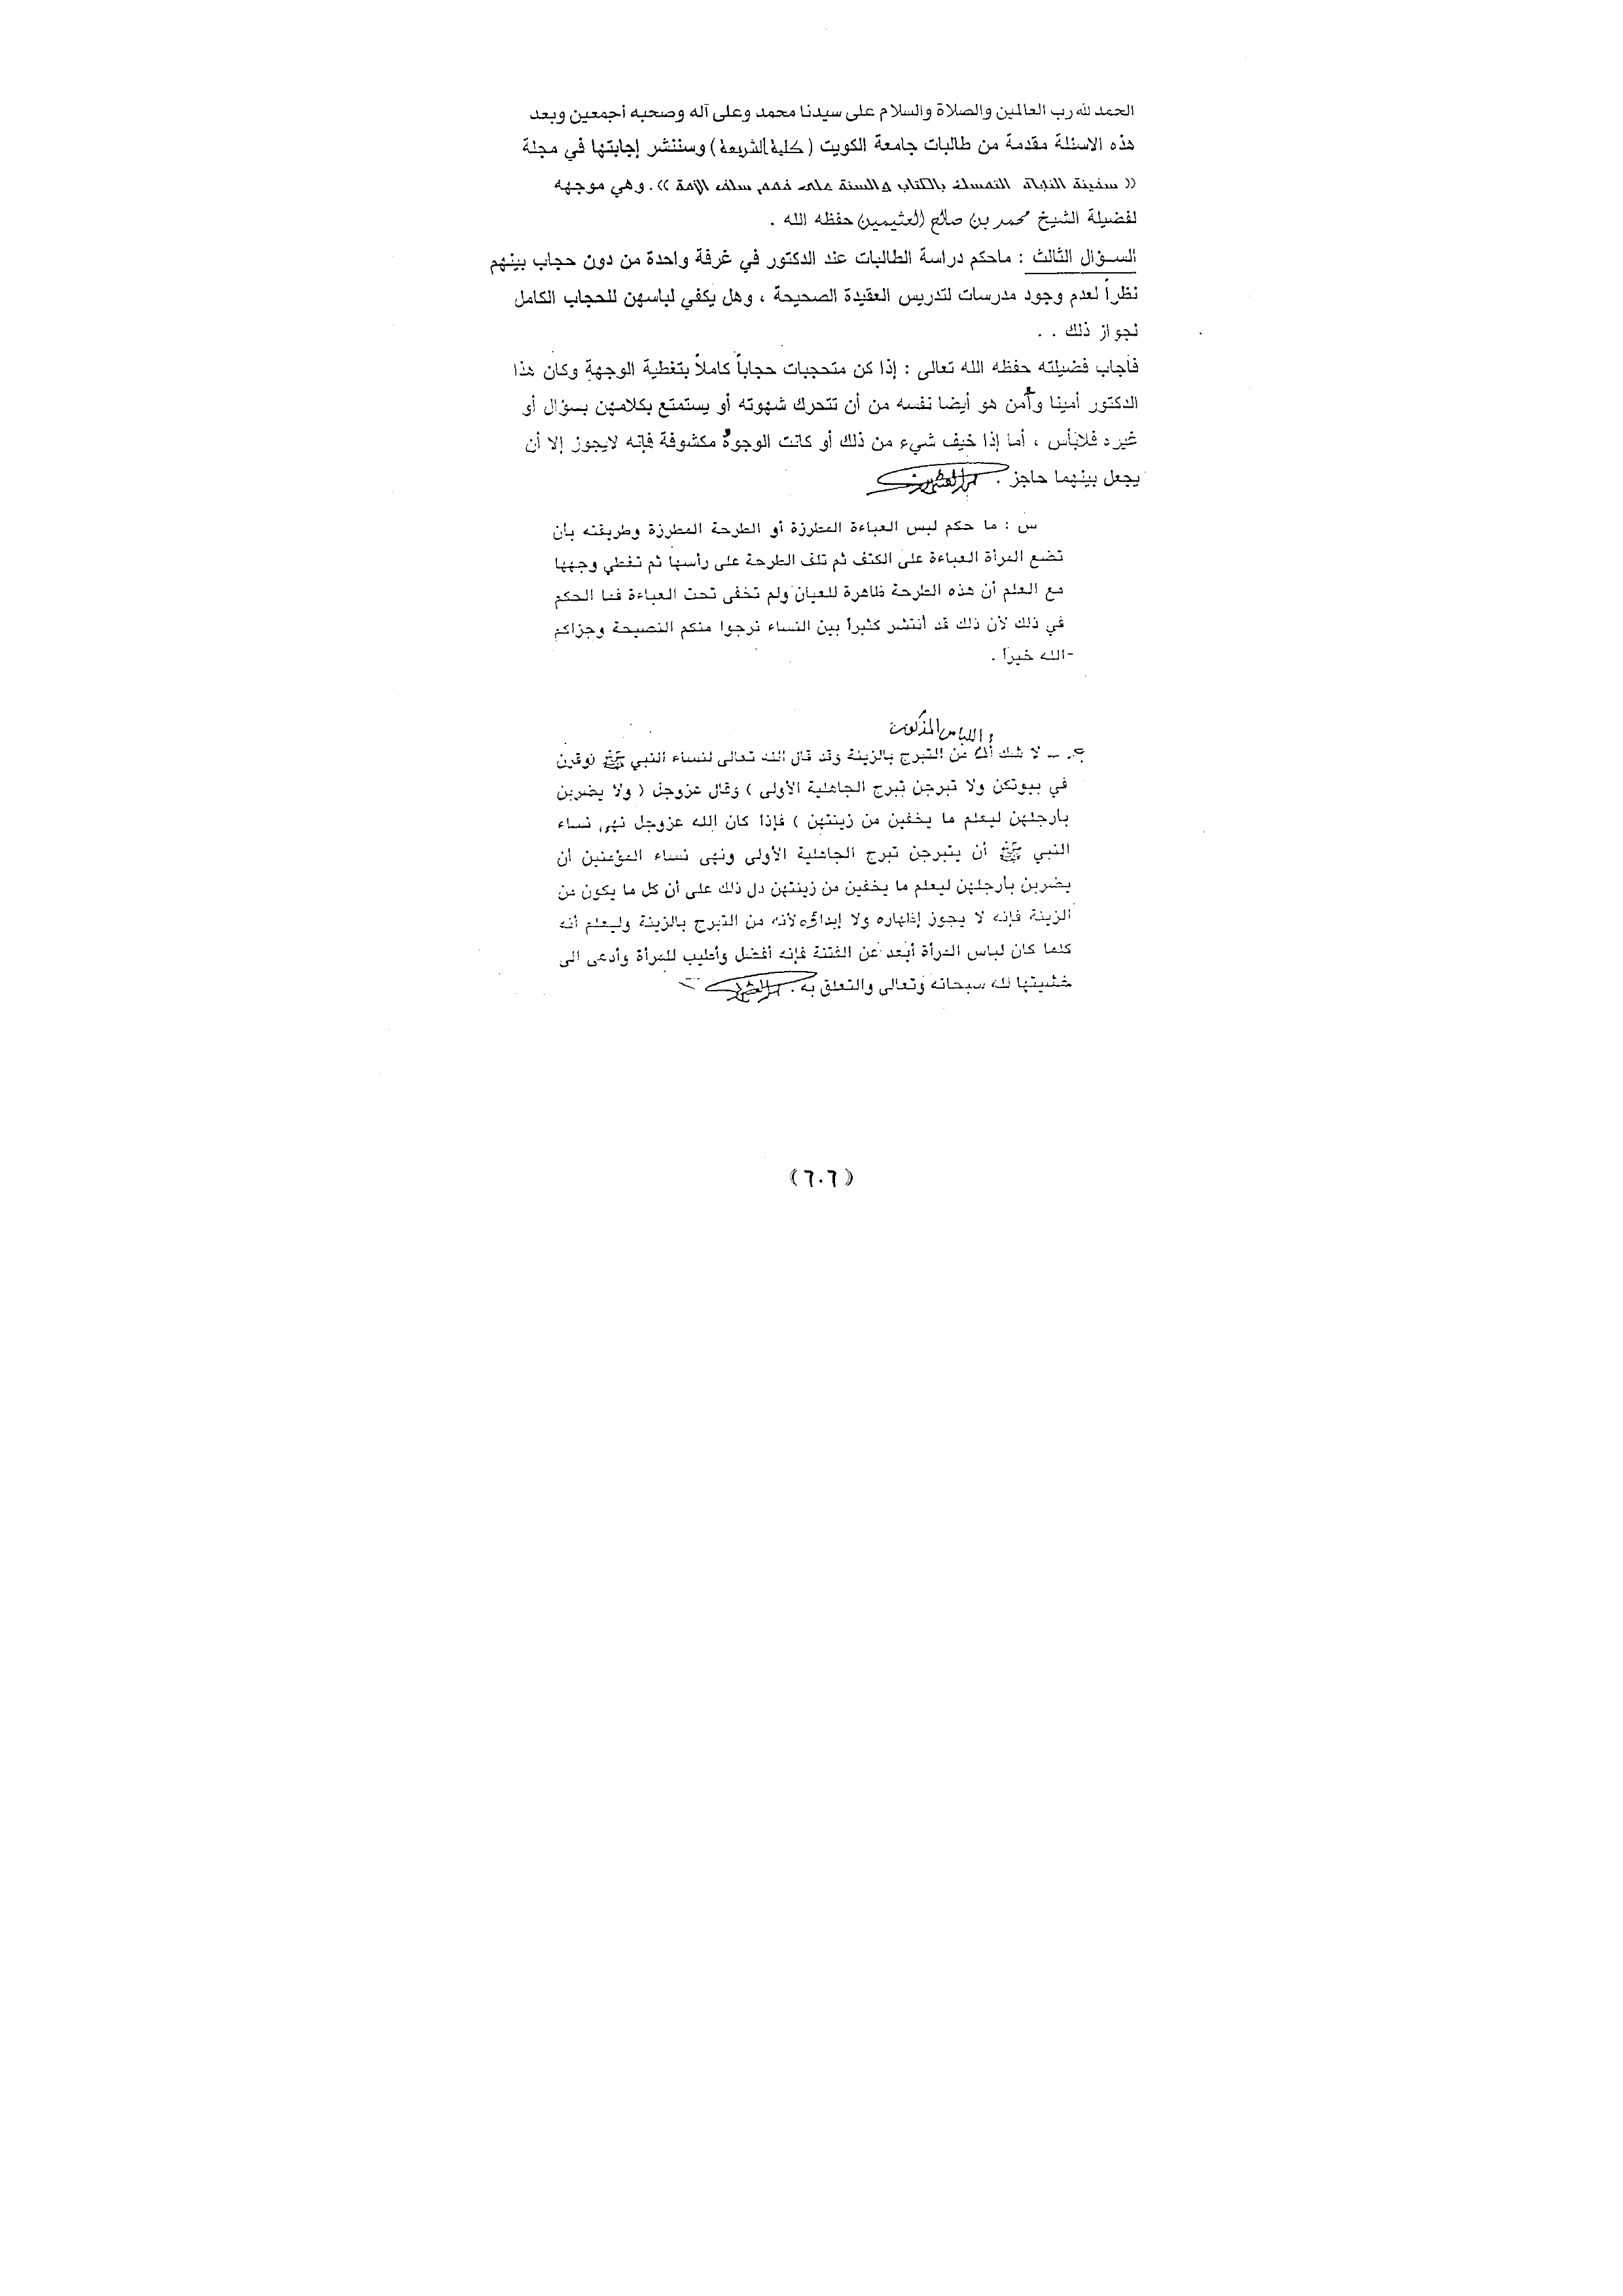 الحمد لله رب العالمين والصلاة والسلام على سيدنا محمد وعلى آله وصحبه أجمعين وبعد
هذه الاسئلة مقدمة من طالبات جامعة الكويت (كلية الشريعة) وسننشر إجابتها في مجلة
(( سفينة النجاة التمسك بالكتاب والسنة على فهم سلف الأمة )) . وهي موجهه
لفضيلة الشيخ محمد بن صالح العثيمين حفظه الله .
السـؤال الثالث : ماحكم دراسة الطالبات عند الدكتور في غرفة واحدة من دون حجاب بينهم
نظراً لعدم وجود مدرسات لتدريس العقيدة الصحيحة ، وهل يكفي لباسهن للحجاب الكامل
نجواز ذلك . .
فأجاب فضيلته حفظه الله تعالى : إذا كن متحجبات حجاباً كاملاً بتغطية الوجهة وكان هذا
الدكتور أمينا وأمن هو أيضا نفسه من أن تتحرك شهوته أو يستمتع بكلامهن بسؤال أو
غيره فلابأس ، أما إذا خيف شيء من ذلك أو كانت الوجوه مكشوفة فإنه لايجوز إلا أن
يجعل بينهما حاجز .
س : ما حكم لبس العباءة المطرزة أو الطرحة المطرزة وطريقته بأن
تضع المرأة العباءة على الكتف ثم تلف الطرحة على رأسها ثم تغطي وجهها
مع العلم أن هذه الطرحة ظاهرة للعيان ولم تخفى تحت العباءة فما الحكم
في ذلك لأن ذلك قد أنتشر كثيراً بين النساء نرجوا منكم النصيحة وجزاكم
الله خيراً .
اللباس المذكور
ج - لا شك أن من التبرج بالزينة وقد قال الله تعالى لنساء النبي ﷺ (وقرن
في بيوتكن ولا تبرجن تبرج الجاهلية الأولى ) وقال عزوجل ( ولا يضربن
بأرجلهن ليعلم ما يخفين من زينتهن ) فإذا كان الله عزوجل نهى نساء
النبي ﷺ أن يتبرجن تبرج الجاهلية الأولى ونهى نساء المؤمنين أن
يضربن بأرجلهن ليعلم ما يخفين من زينتهن دل ذلك على أن كل ما يكون من
الزينة فإنه لا يجوز إظهاره ولا إبداؤه لأنه من التبرج بالزينة وليعلم أنه
كلما كان لباس المرأة أبعد عن الفتنة فإنه أفضل وأطيب للمرأة وأدعى الى
خشيتها لله سبحانه وتعالى والتعلق به .
(٦٠٦)